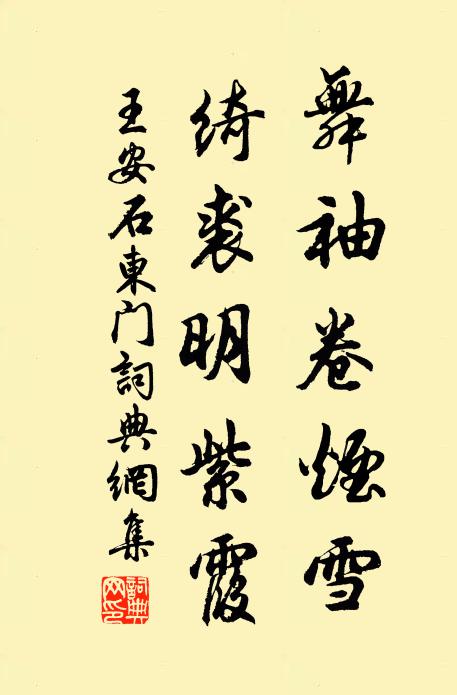 舞袖卷煙雪
綺裘明紫霞
王安石東門詞典網集
詞典网印